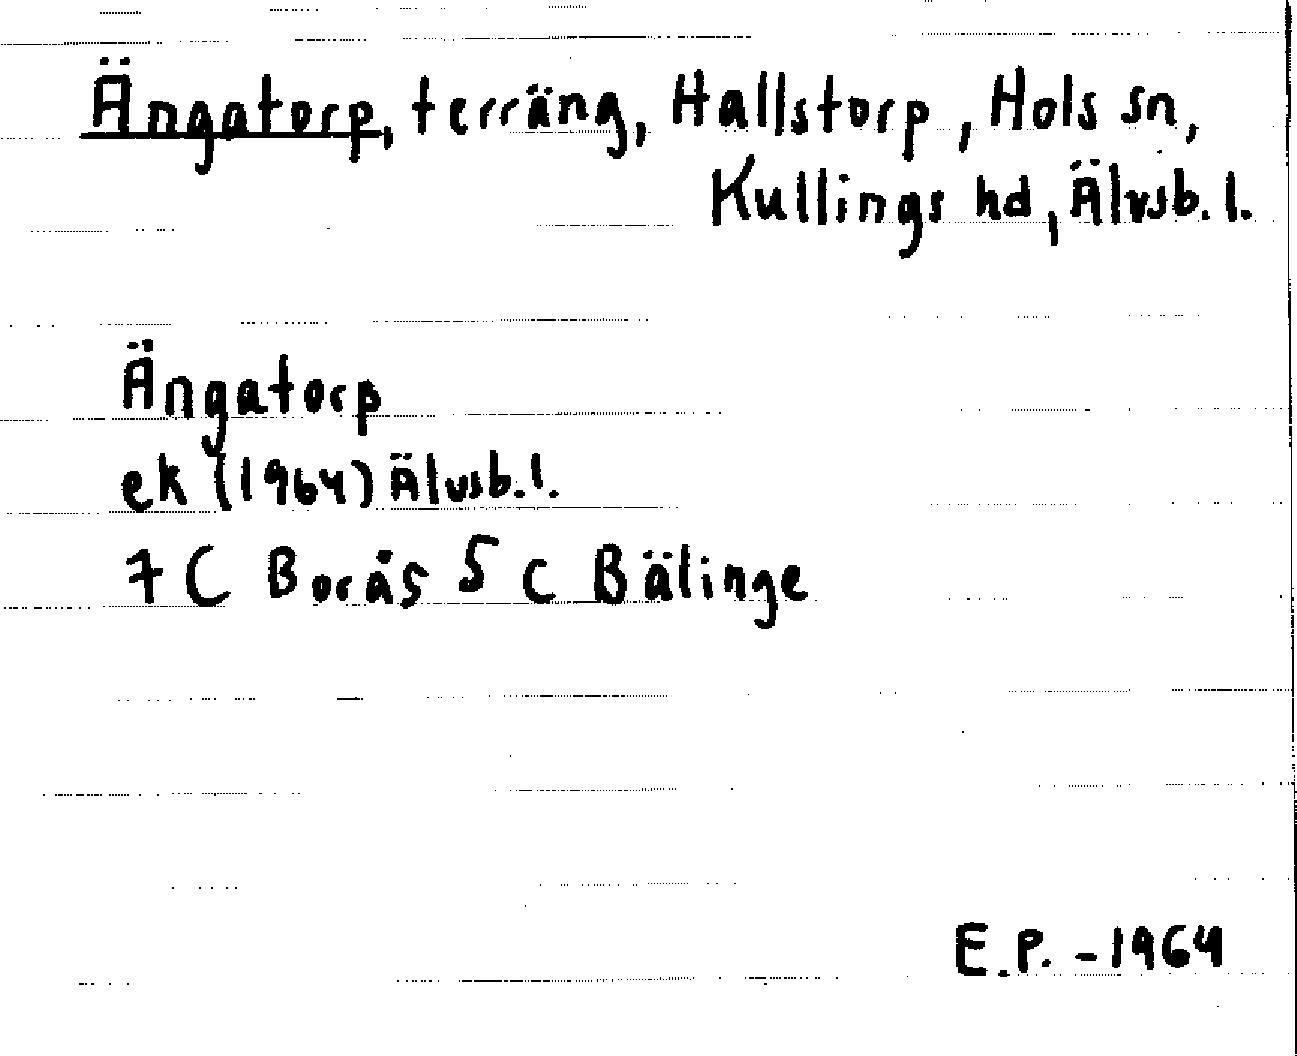 Ängatorp, terräng, Hallstorp, Hols sn,
Kullings hd, Älvsb. l.
Ängatorp
ek (1964) Älvsb. l.
7 C Borås 5 c Bälinge
E.P. - 1964